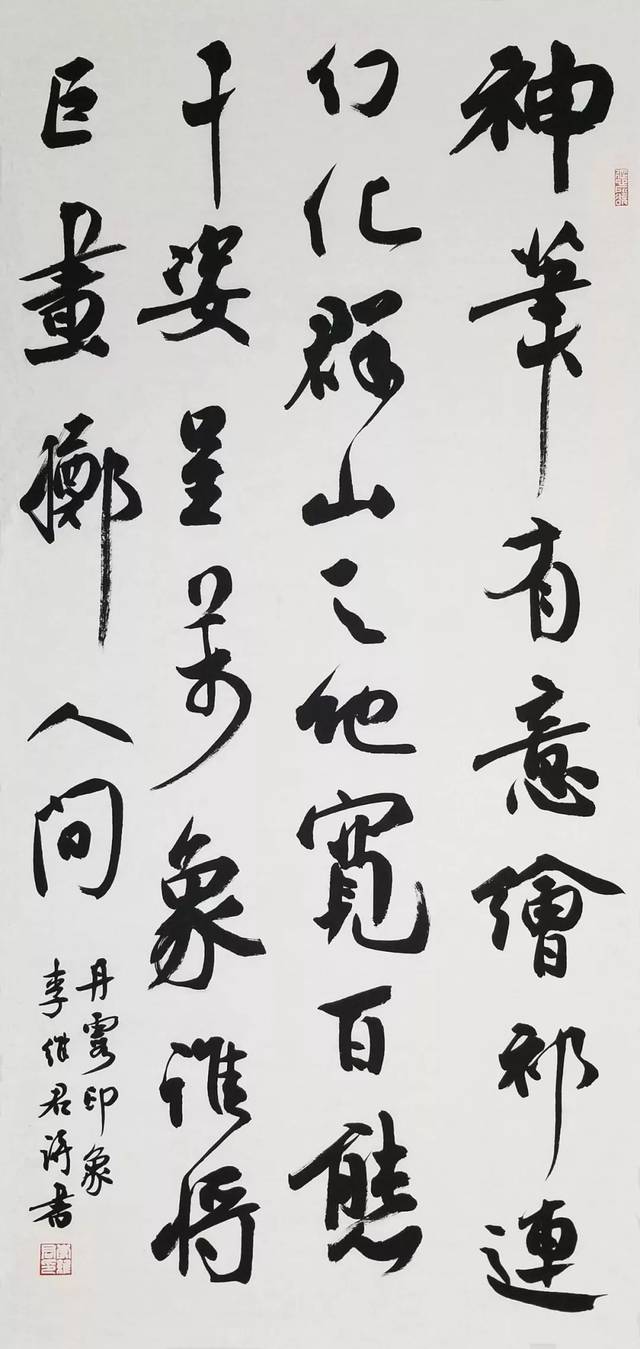 神筆有意繪祁連
幻化群山之地寬百態
千姿呈萬象誰將
巨畫擲人間
丹霞印象
李維君詩書